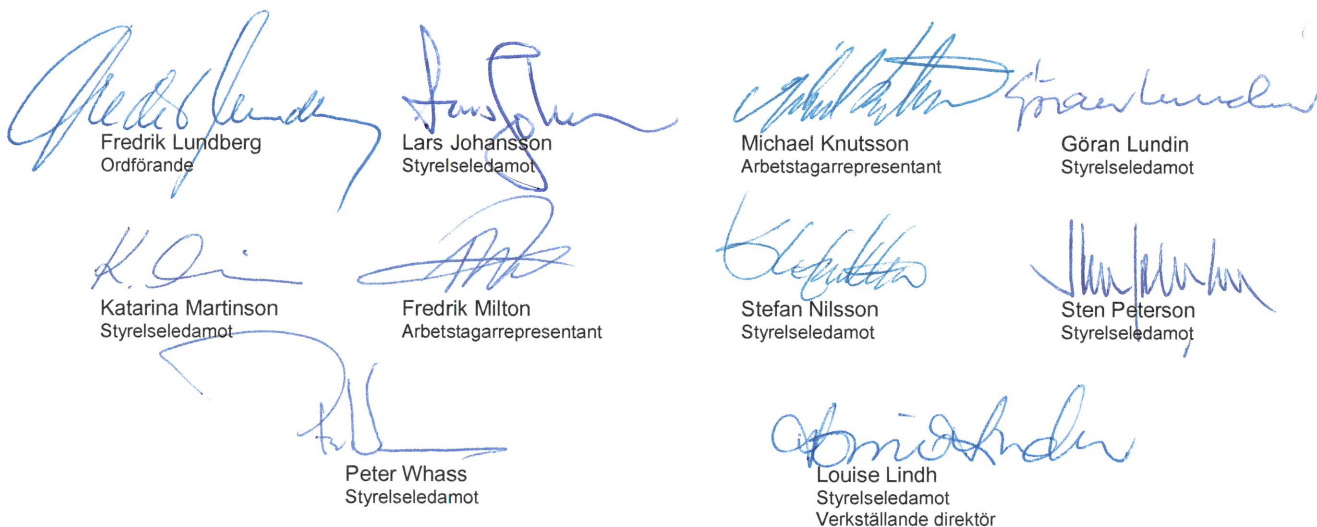 Fredrik Lundberg
Ordförande
Lars Johansson
Styrelseledamot
Michael Knutsson
Arbetstagarrepresentant
Göran Lundin
Styrelseledamot
Katarina Martinson
Styrelseledamot
Fredrik Milton
Arbetstagarrepresentant
Stefan Nilsson
Styrelseledamot
Sten Peterson
Styrelseledamot
Peter Whass
Styrelseledamot
Louise Lindh
Styrelseledamot
Verkställande direktör